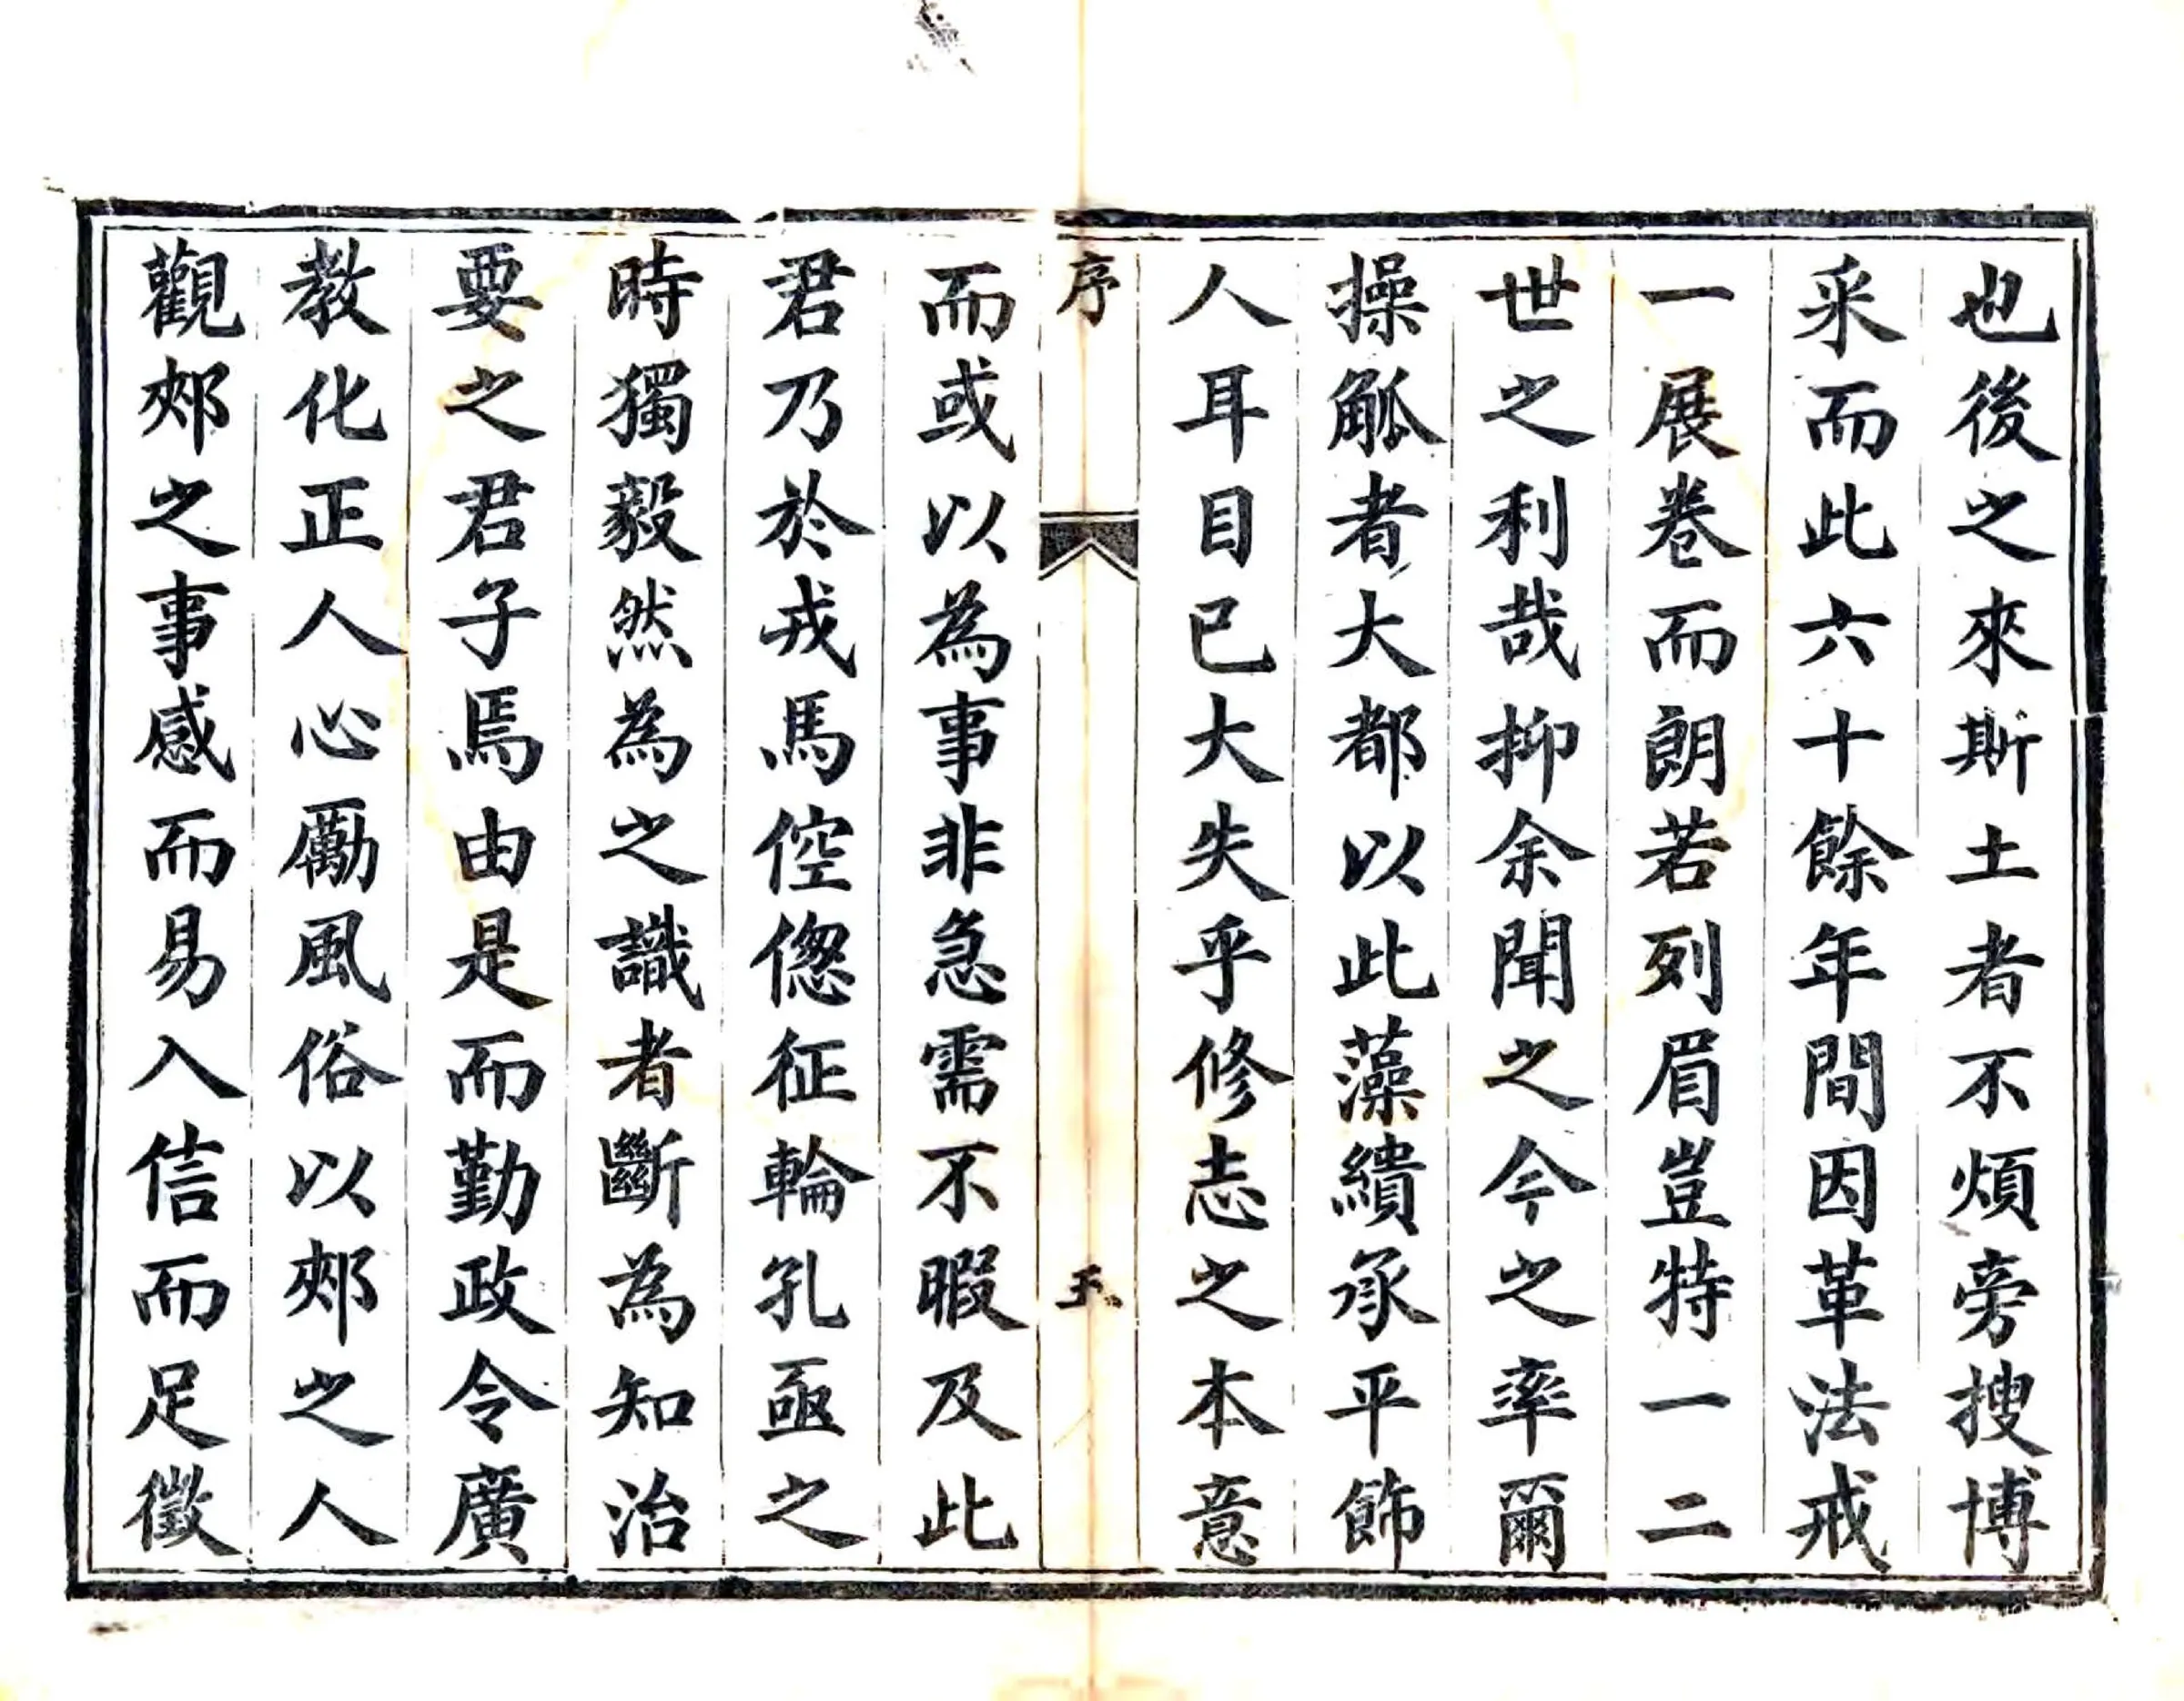 也後之來斯土者不煩旁搜博
采而此六十餘年間因革法戒
一展卷而朗若列眉豈特一二
世之利哉抑余聞之今之率爾
操觚者大都以此藻繢承平飾
人耳目已大失乎修志之本意
序
五
而或以為事非急需不暇及此
君乃於戎馬倥傯征輪孔亟之
時獨毅然為之識者斷為知治
要之君子焉由是而勤政令廣
教化正人心勵風俗以郟之人
觀郟之事感而易入信而足徵